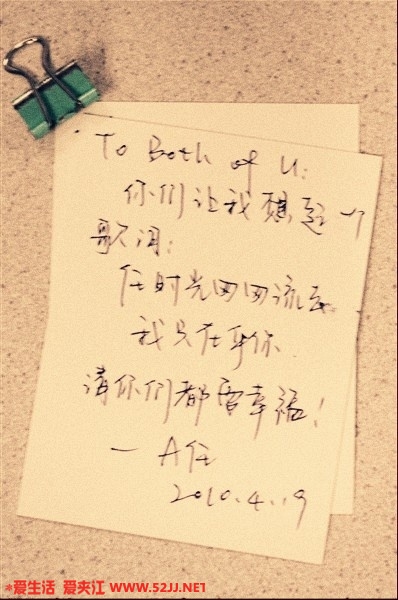 To Both of U:
你们让我想起一个
歌词:
任时光匆匆流去
我只在乎你
请你们都要幸福!
— A任
2010.4.19
*爱生活 爱夹江 WWW.52JJ.NET